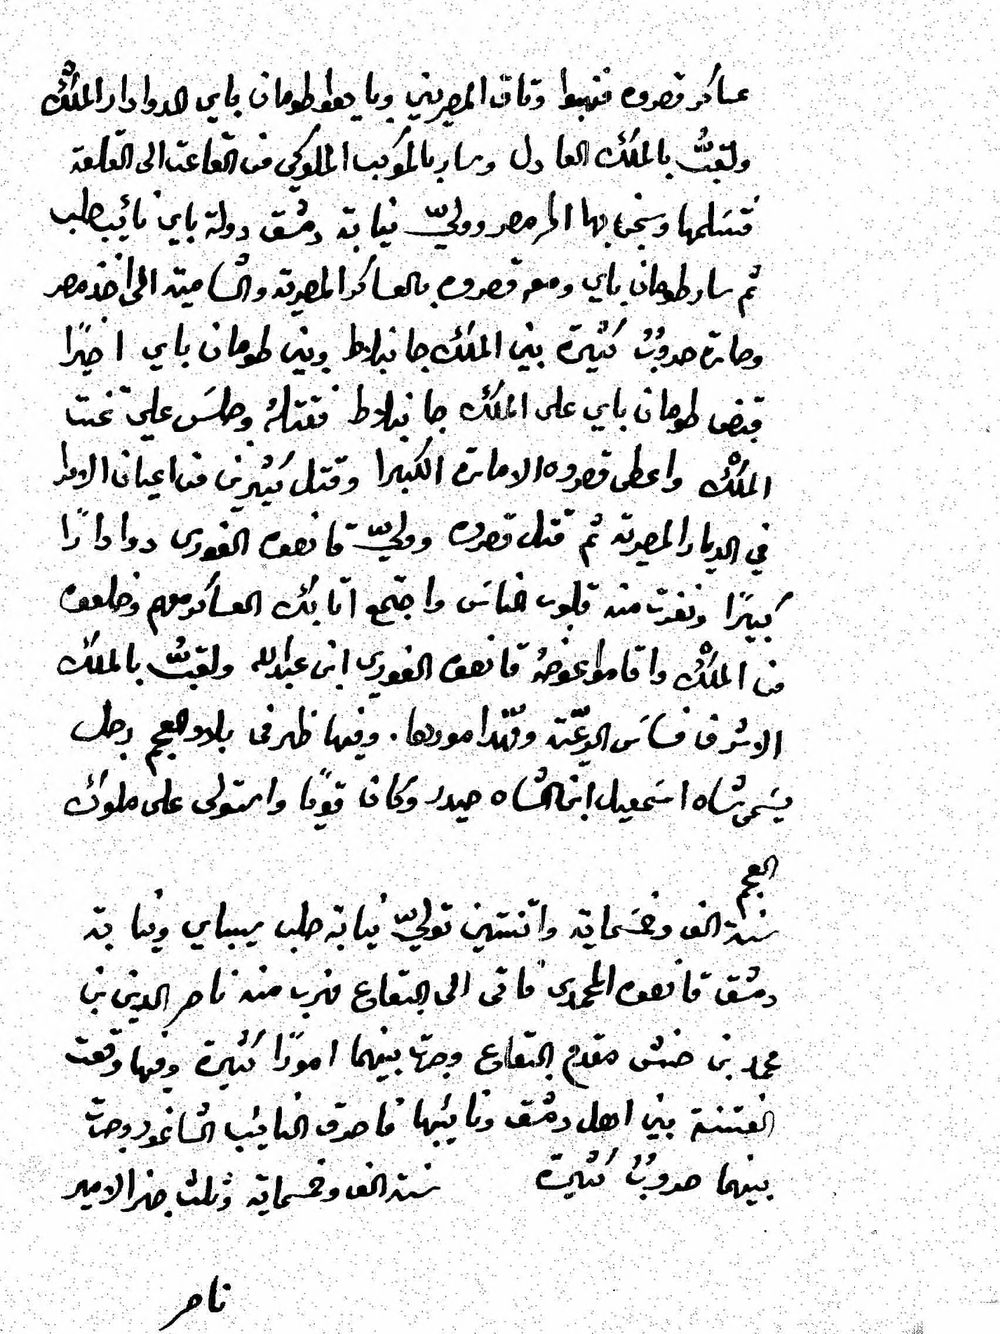 عساكر قصروه فنهبوا وتاق المصريني وبايعوا طومان باي الدوادار الملكْ
ولقبُّ بالملك العادل وسار بالموكب الملوكي من القاعة الى القلعة
فتسَلمها وسجن بها امر مصر ووليّ نيابة دمشق دولة باي نائب حلب
ثم سار طومان باي ومعه قصروه بالعساكر المصرية والشامية الى اخذ مصر
وصارة حروبٌ كثيرة بين الملك جانبلاط وبين طومان باي اخيرًا
قبض طومان باي على الملك جانبلاط فقتلهُ وجلسَ علي تخت
الملكْ واعطى قصروه الامارة الكبيرا وقتل كثيرين من اعيان الامرا
في الديار المصرية ثم قتل قصروه ووليّ قانصوه الغوري دوادارًا
كبيرًا ونفرت منه قلوب الناسَ واجتمع اتابك العساكر معهم وخلعوه
من الملكْ واقاموا عوضهُ قانصوه الغوري ابن عبدالله ولقبُّ بالملك
الاشرف فساسَ الرعيّة ومهّد امورها. وفيها ظهر في بلاد العجم رجل
يسَمى شاه اسَمعيل ابن الشاه حيدر وكان قويًا واستولى على ملوك
العجم
سنة الف وخمسَماية واثنتين توليّ نيابة حلب سيباي ونيابة
دمشق قانصوه المحمدي فاتى الى البقاع فهرب منه ناصر الدين بن
محمد بن حنش مقدم البقاع وجرت بينهما امورًا كثيرة وفيها وقعت
الفتنة بين اهل دمشق ونائبها فاحرق النائب الشاغور وجرت
بينهما حروبٌ كثيرة سنة الف وخمسماية وثلث حضر الامير
ناصر